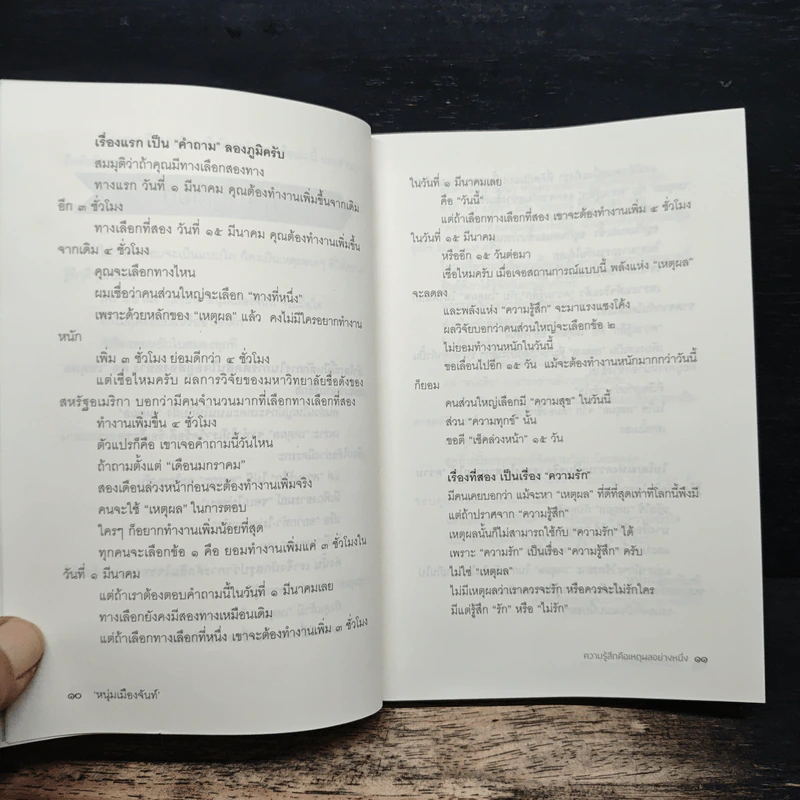 เรื่องแรก เป็น “คำถาม” ลองภูมิครับ
สมมุติว่าถ้าคุณมีทางเลือกสองทาง
ทางแรก วันที่ ๑ มีนาคม คุณต้องทำงานเพิ่มขึ้นจากเดิม
อีก ๓ ชั่วโมง
ทางเลือกที่สอง วันที่ ๑๕ มีนาคม คุณต้องทำงานเพิ่มขึ้น
จากเดิม ๔ ชั่วโมง
คุณจะเลือกทางไหน
ผมเชื่อว่าคนส่วนใหญ่จะเลือก “ทางที่หนึ่ง”
เพราะด้วยหลักของ “เหตุผล” แล้ว คงไม่มีใครอยากทำงาน
หนัก
เพิ่ม ๓ ชั่วโมง ย่อมดีกว่า ๔ ชั่วโมง
แต่เชื่อไหมครับ ผลการวิจัยของมหาวิทยาลัยชื่อดังของ
สหรัฐอเมริกา บอกว่ามีคนจำนวนมากที่เลือกทางเลือกที่สอง
ทำงานเพิ่มขึ้น ๔ ชั่วโมง
ตัวแปรก็คือ เขาเจอคำถามนี้วันไหน
ถ้าถามตั้งแต่ “เดือนมกราคม”
สองเดือนล่วงหน้าก่อนจะต้องทำงานเพิ่มจริง
คนจะใช้ “เหตุผล” ในการตอบ
ใครๆ ก็อยากทำงานเพิ่มน้อยที่สุด
ทุกคนจะเลือกข้อ ๑ คือ ยอมทำงานเพิ่มแค่ ๓ ชั่วโมงใน
วันที่ ๑ มีนาคม
แต่ถ้าเราต้องตอบคำถามนี้ในวันที่ ๑ มีนาคมเลย
ทางเลือกยังคงมีสองทางเหมือนเดิม
แต่ถ้าเลือกทางเลือกที่หนึ่ง เขาจะต้องทำงานเพิ่ม ๓ ชั่วโมง
๑๐ ‘หนุ่มเมืองจันท์’
ในวันที่ ๑ มีนาคมเลย
คือ “วันนี้”
แต่ถ้าเลือกทางเลือกที่สอง เขาจะต้องทำงานเพิ่ม ๔ ชั่วโมง
ในวันที่ ๑๕ มีนาคม
หรืออีก ๑๕ วันต่อมา
เชื่อไหมครับ เมื่อเจอสถานการณ์แบบนี้ พลังแห่ง “เหตุผล”
จะลดลง
และพลังแห่ง “ความรู้สึก” จะมาแรงแซงโค้ง
ผลวิจัยบอกว่าคนส่วนใหญ่จะเลือกข้อ ๒
ไม่ยอมทำงานหนักในวันนี้
ขอเลื่อนไปอีก ๑๕ วัน แม้จะต้องทำงานหนักมากกว่าวันนี้
ก็ยอม
คนส่วนใหญ่เลือกมี “ความสุข” ในวันนี้
ส่วน “ความทุกข์” นั้น
ขอตี “เช็คล่วงหน้า” ๑๕ วัน
เรื่องที่สอง เป็นเรื่อง “ความรัก”
มีคนเคยบอกว่า แม้จะหา “เหตุผล” ที่ดีที่สุดเท่าที่โลกนี้พึงมี
แต่ถ้าปราศจาก “ความรู้สึก”
เหตุผลนั้นก็ไม่สามารถใช้กับ “ความรัก” ได้
เพราะ “ความรัก” เป็นเรื่อง “ความรู้สึก” ครับ
ไม่ใช่ “เหตุผล”
ไม่มีเหตุผลว่าเราควรจะรัก หรือควรจะไม่รักใคร
มีแต่รู้สึก “รัก” หรือ “ไม่รัก”
ความรู้สึกคือเหตุผลอย่างหนึ่ง ๑๑